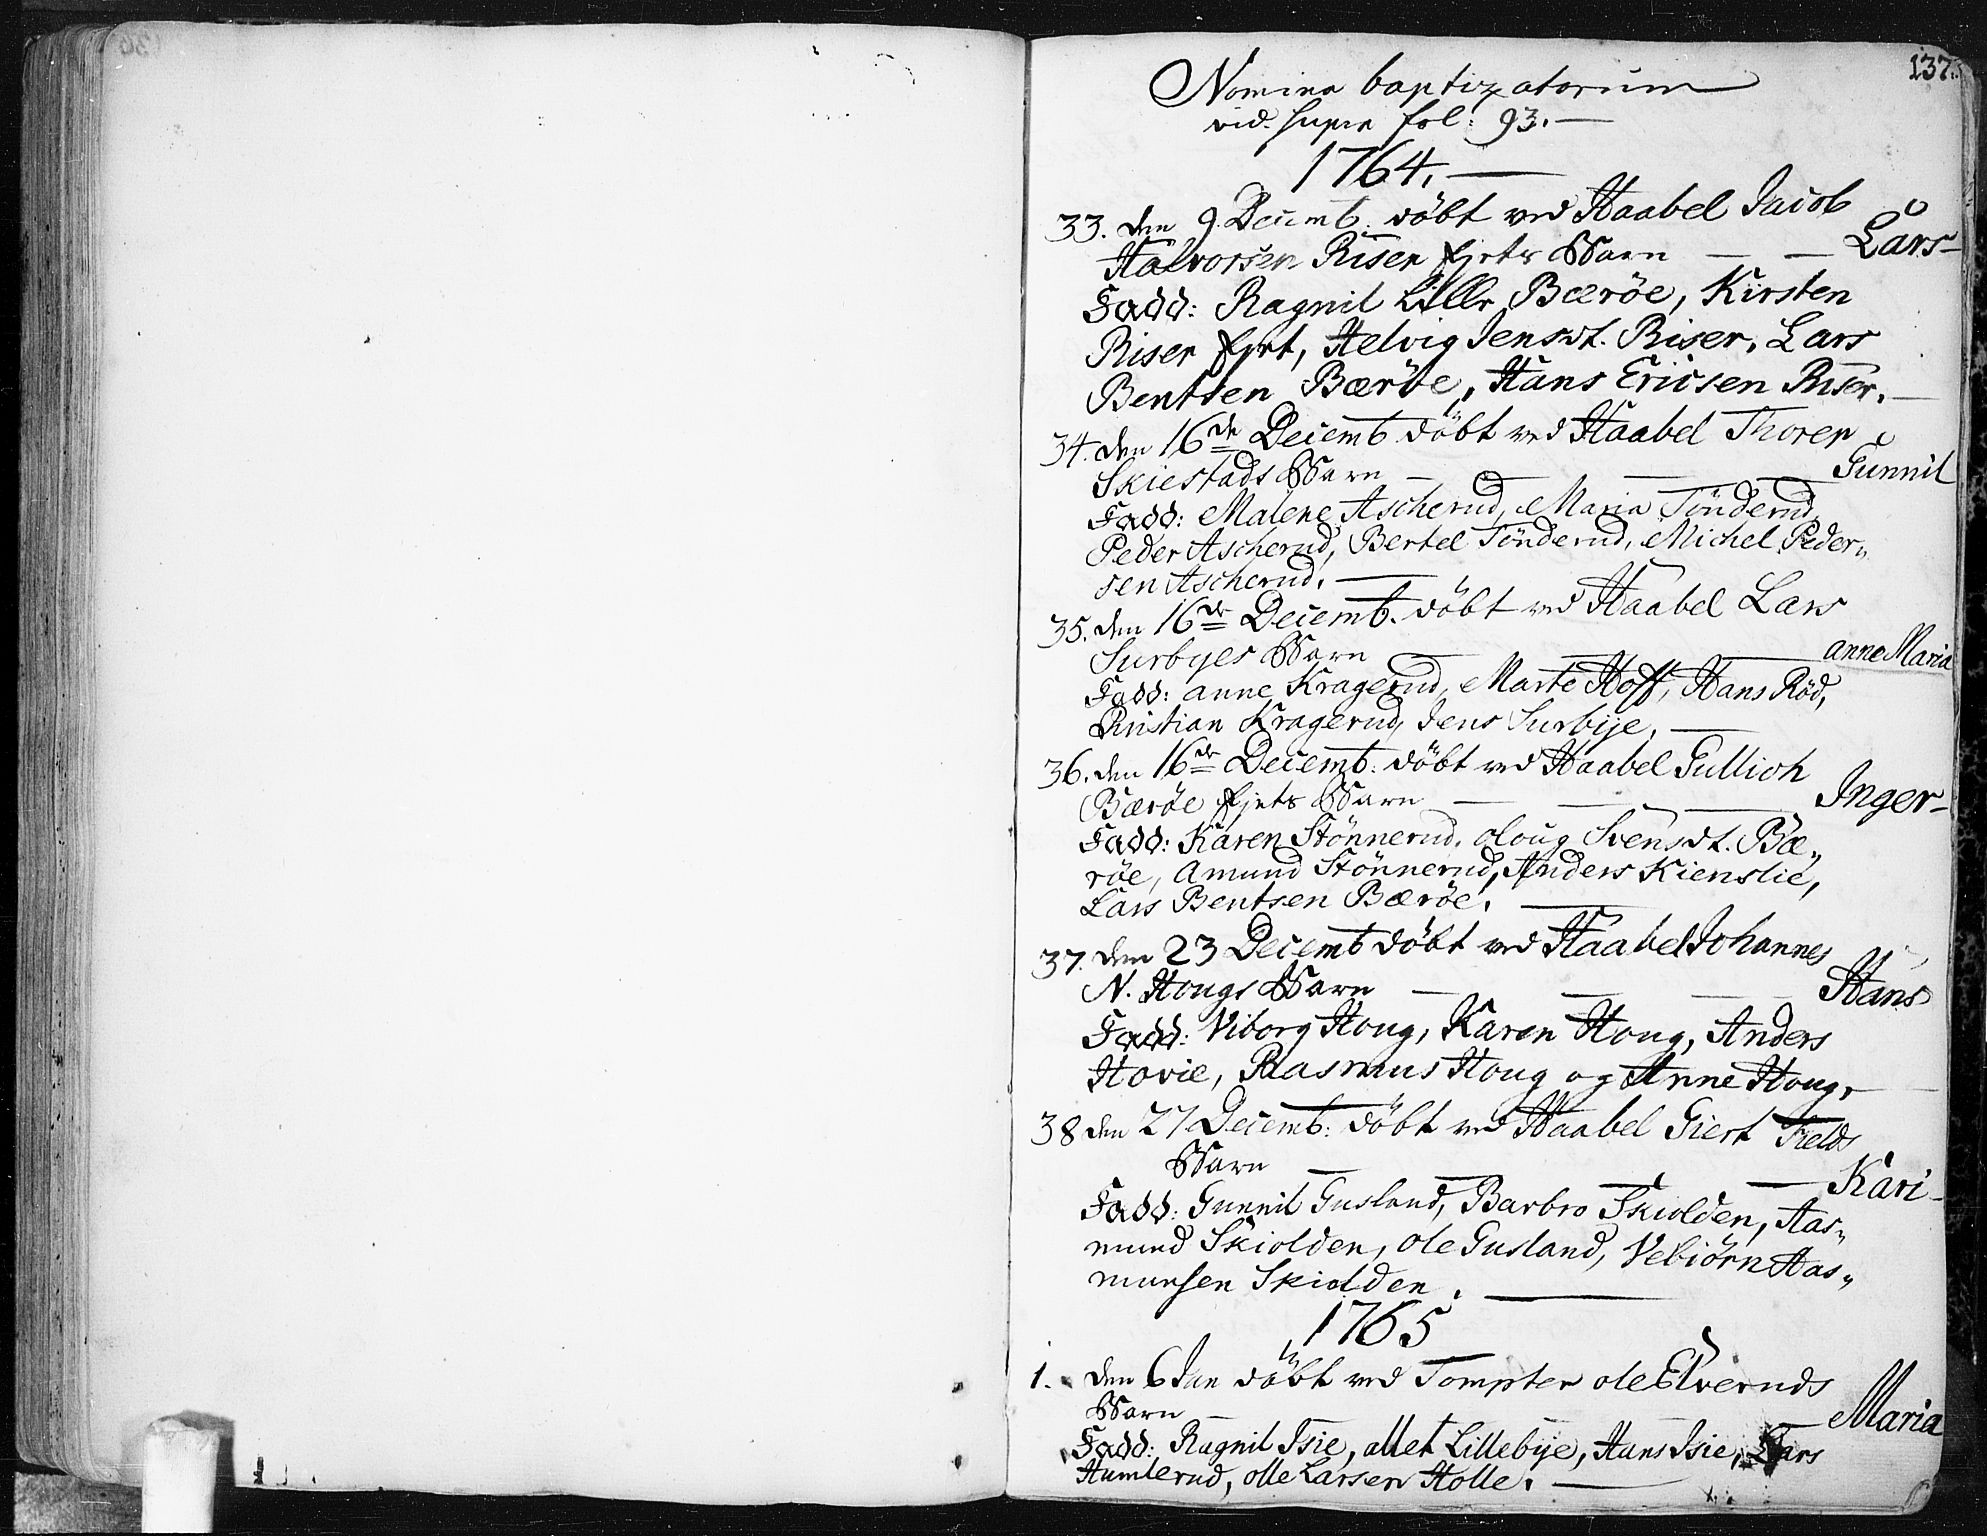 137.
Nomina baptizatorum
vid. supra fol: 93.
1764.
33. den 9. Decemb. döbt ved Haabel Jacob
Halvorsen Riser ejets Barn — — Lars
Fadd: Ragnil Lille Bæröe, Kirsten
Riser ejet, Helvig Jensdt. Riser, Lars
Bentsen Bæröe, Hans Ericsen Riser.
34. den 16de Decemb döbt ved Haabel Thorer
Skiestads Barn — — — Gunnil
Fadd: Malene Ascherud, Maria Tönderud,
Peder Ascherud, Bertel Tönderud, Michel Peder„
sen Ascherud.
35. den 16de Decemb. döbt ved Haabel Lars
Surbyes Barn — — — anne Maria
Fadd: anne Kragerud, Marte Hoff, Hans Röd,
Christian Kragerud, Jens Surbye.
36. den 16de Decemb: döbt ved Haabel Gullich
Bæröe ejets Barn — — — Inger
Fadd: Karen Stönnerud, oloug Svensdt. Bæ„
röe, Amund Stönnerud, Anders Kienslie,
Lars Bentsen Bæröe.
37. den 23 Decemb döbt ved Haabel Johannes
N. Hougs Barn — — — Hans
Fadd: Viborg Houg, Karen Houg, Anders
Hovie, Rasmus Houg og Anne Houg,
38 den 27 Decemb: döbt ved Haabel Giert Fields
Barn — — — Kari
Fadd: Gunnil Gusland, Barbro Skiolden, Aas„
mund Skiolden, Ole Gusland, Vebiörn Aas„
munsen Skiolden.
1765
1. den 6 Jan döbt ved Tompter ole Elveruds
Barn — Maria
Fadd: Ragnil Isie, allet Lillebye, Hans Isie, Lars
Humlerud, olle Larsen Holle.